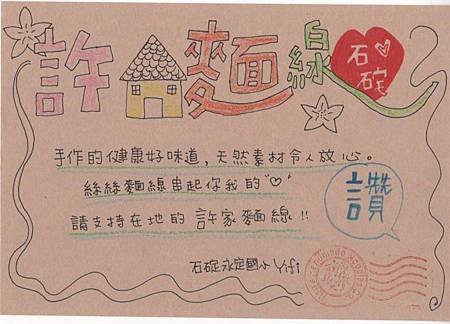 許麵線
石碇
手作的健康好味道，天然素材令人放心。
絲絲麵線串起你我的"♡"
請支持在地的許家麵線!!
讚
石碇永定國小 Yifi